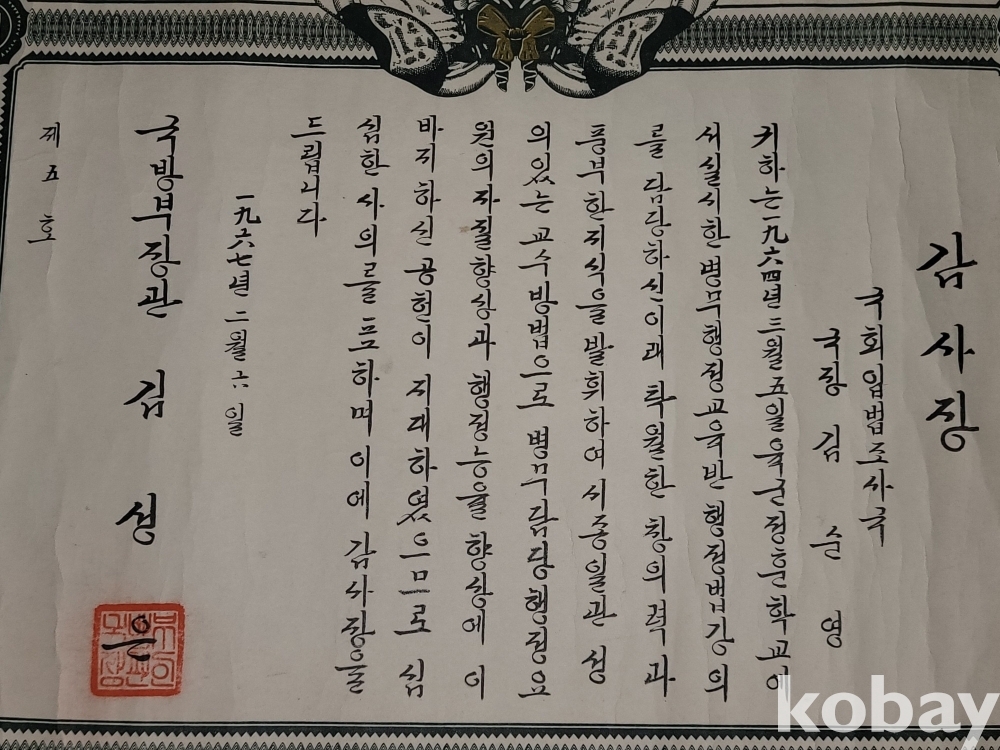 감사장
국회입법조사국
국장 김순영
귀하는 一九六四년 三월 五일 육군정훈학교에
서 실시한 병무행정교육반 행정법강의
를 담당하신 이래 탁월한 창의력과
풍부한 지식을 발휘하여 시종일관 성
의있는 교수방법으로 병무담당행정요
원의 자질향상과 행정능률향상에 이
바지하신 공헌이 지대하였으므로 심
심한 사의를 표하며 이에 감사장을
드립니다
一九六七년 二월 六일
국방부장관 김성은
제五호
kobay